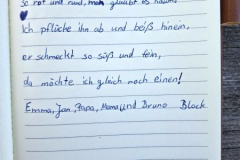 so rot und rund, man glaubt es kaum.
Ich pflücke ihn ab und beiß hinein,
er schmeckt so süß und fein,
da möchte ich gleich noch einen!
Emma, Jan, Papa, Mama, und Bruno Block